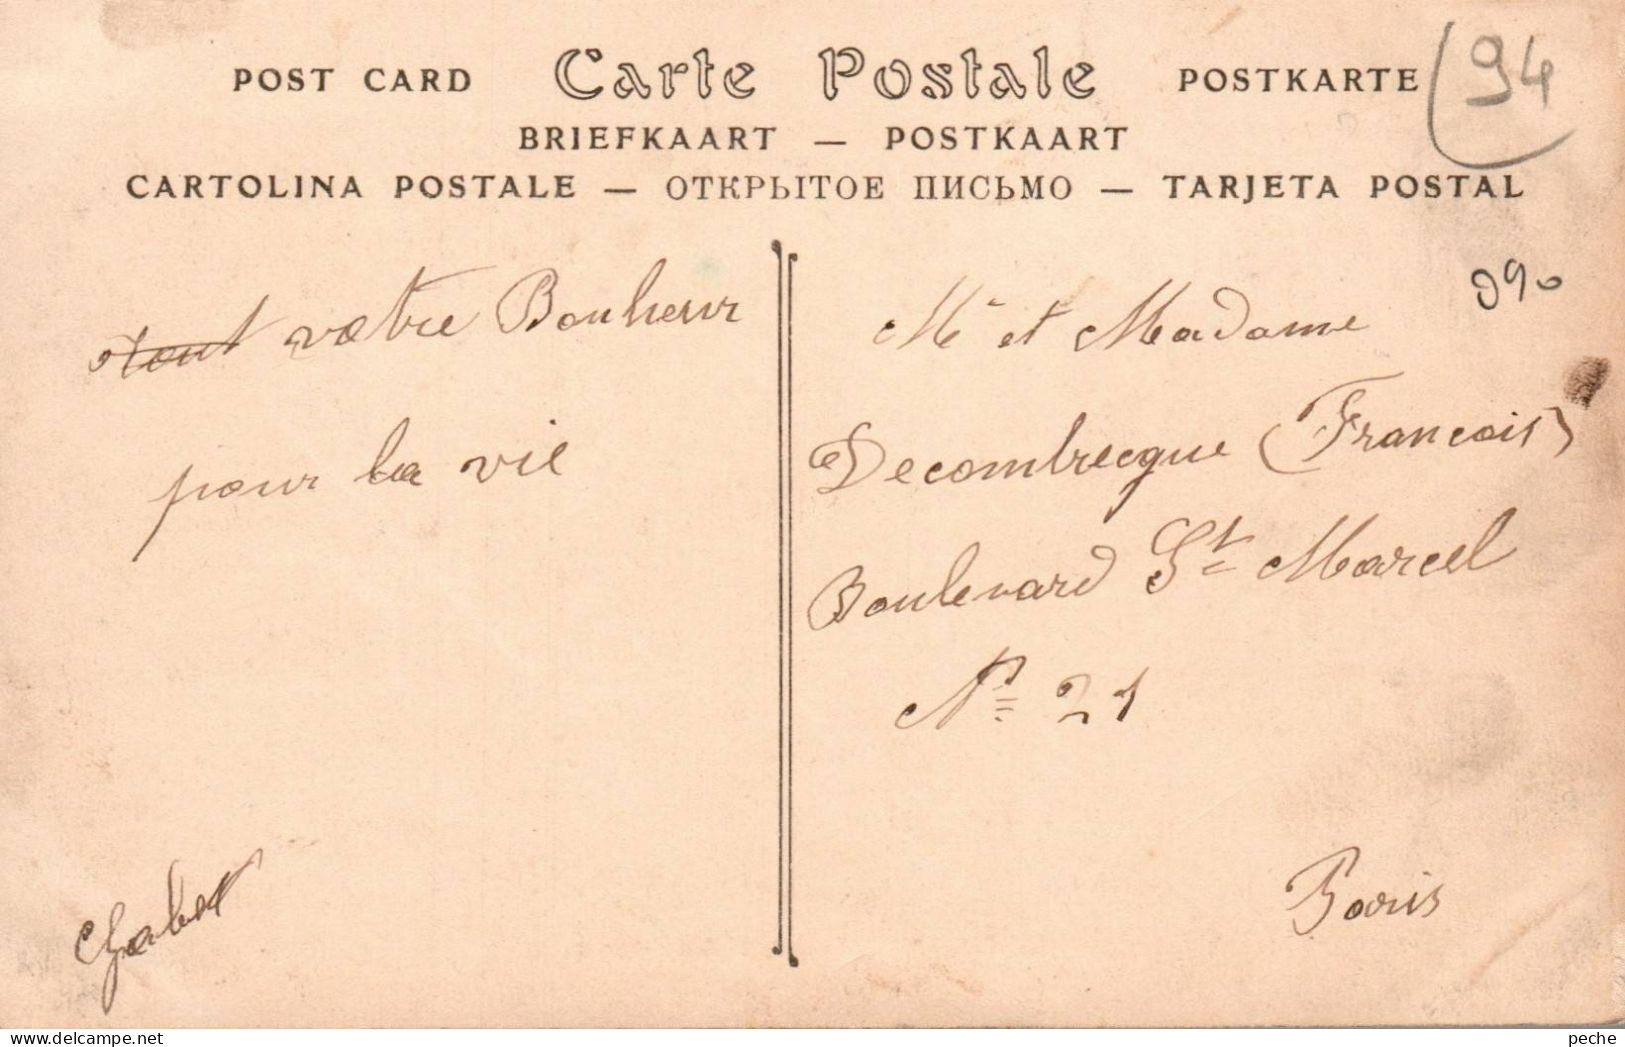 POST CARD Carte Postale POSTKARTE 94
BRIEFKAART — POSTKAART
CARTOLINA POSTALE — ОТКРЫТОЕ ПИСЬМО — TARJETA POSTAL
tout votre Bonheur
pour la vie
Mr et Madame
Decombrecque (Francois)
Boulevard St Marcel
No 21
Paris
peche